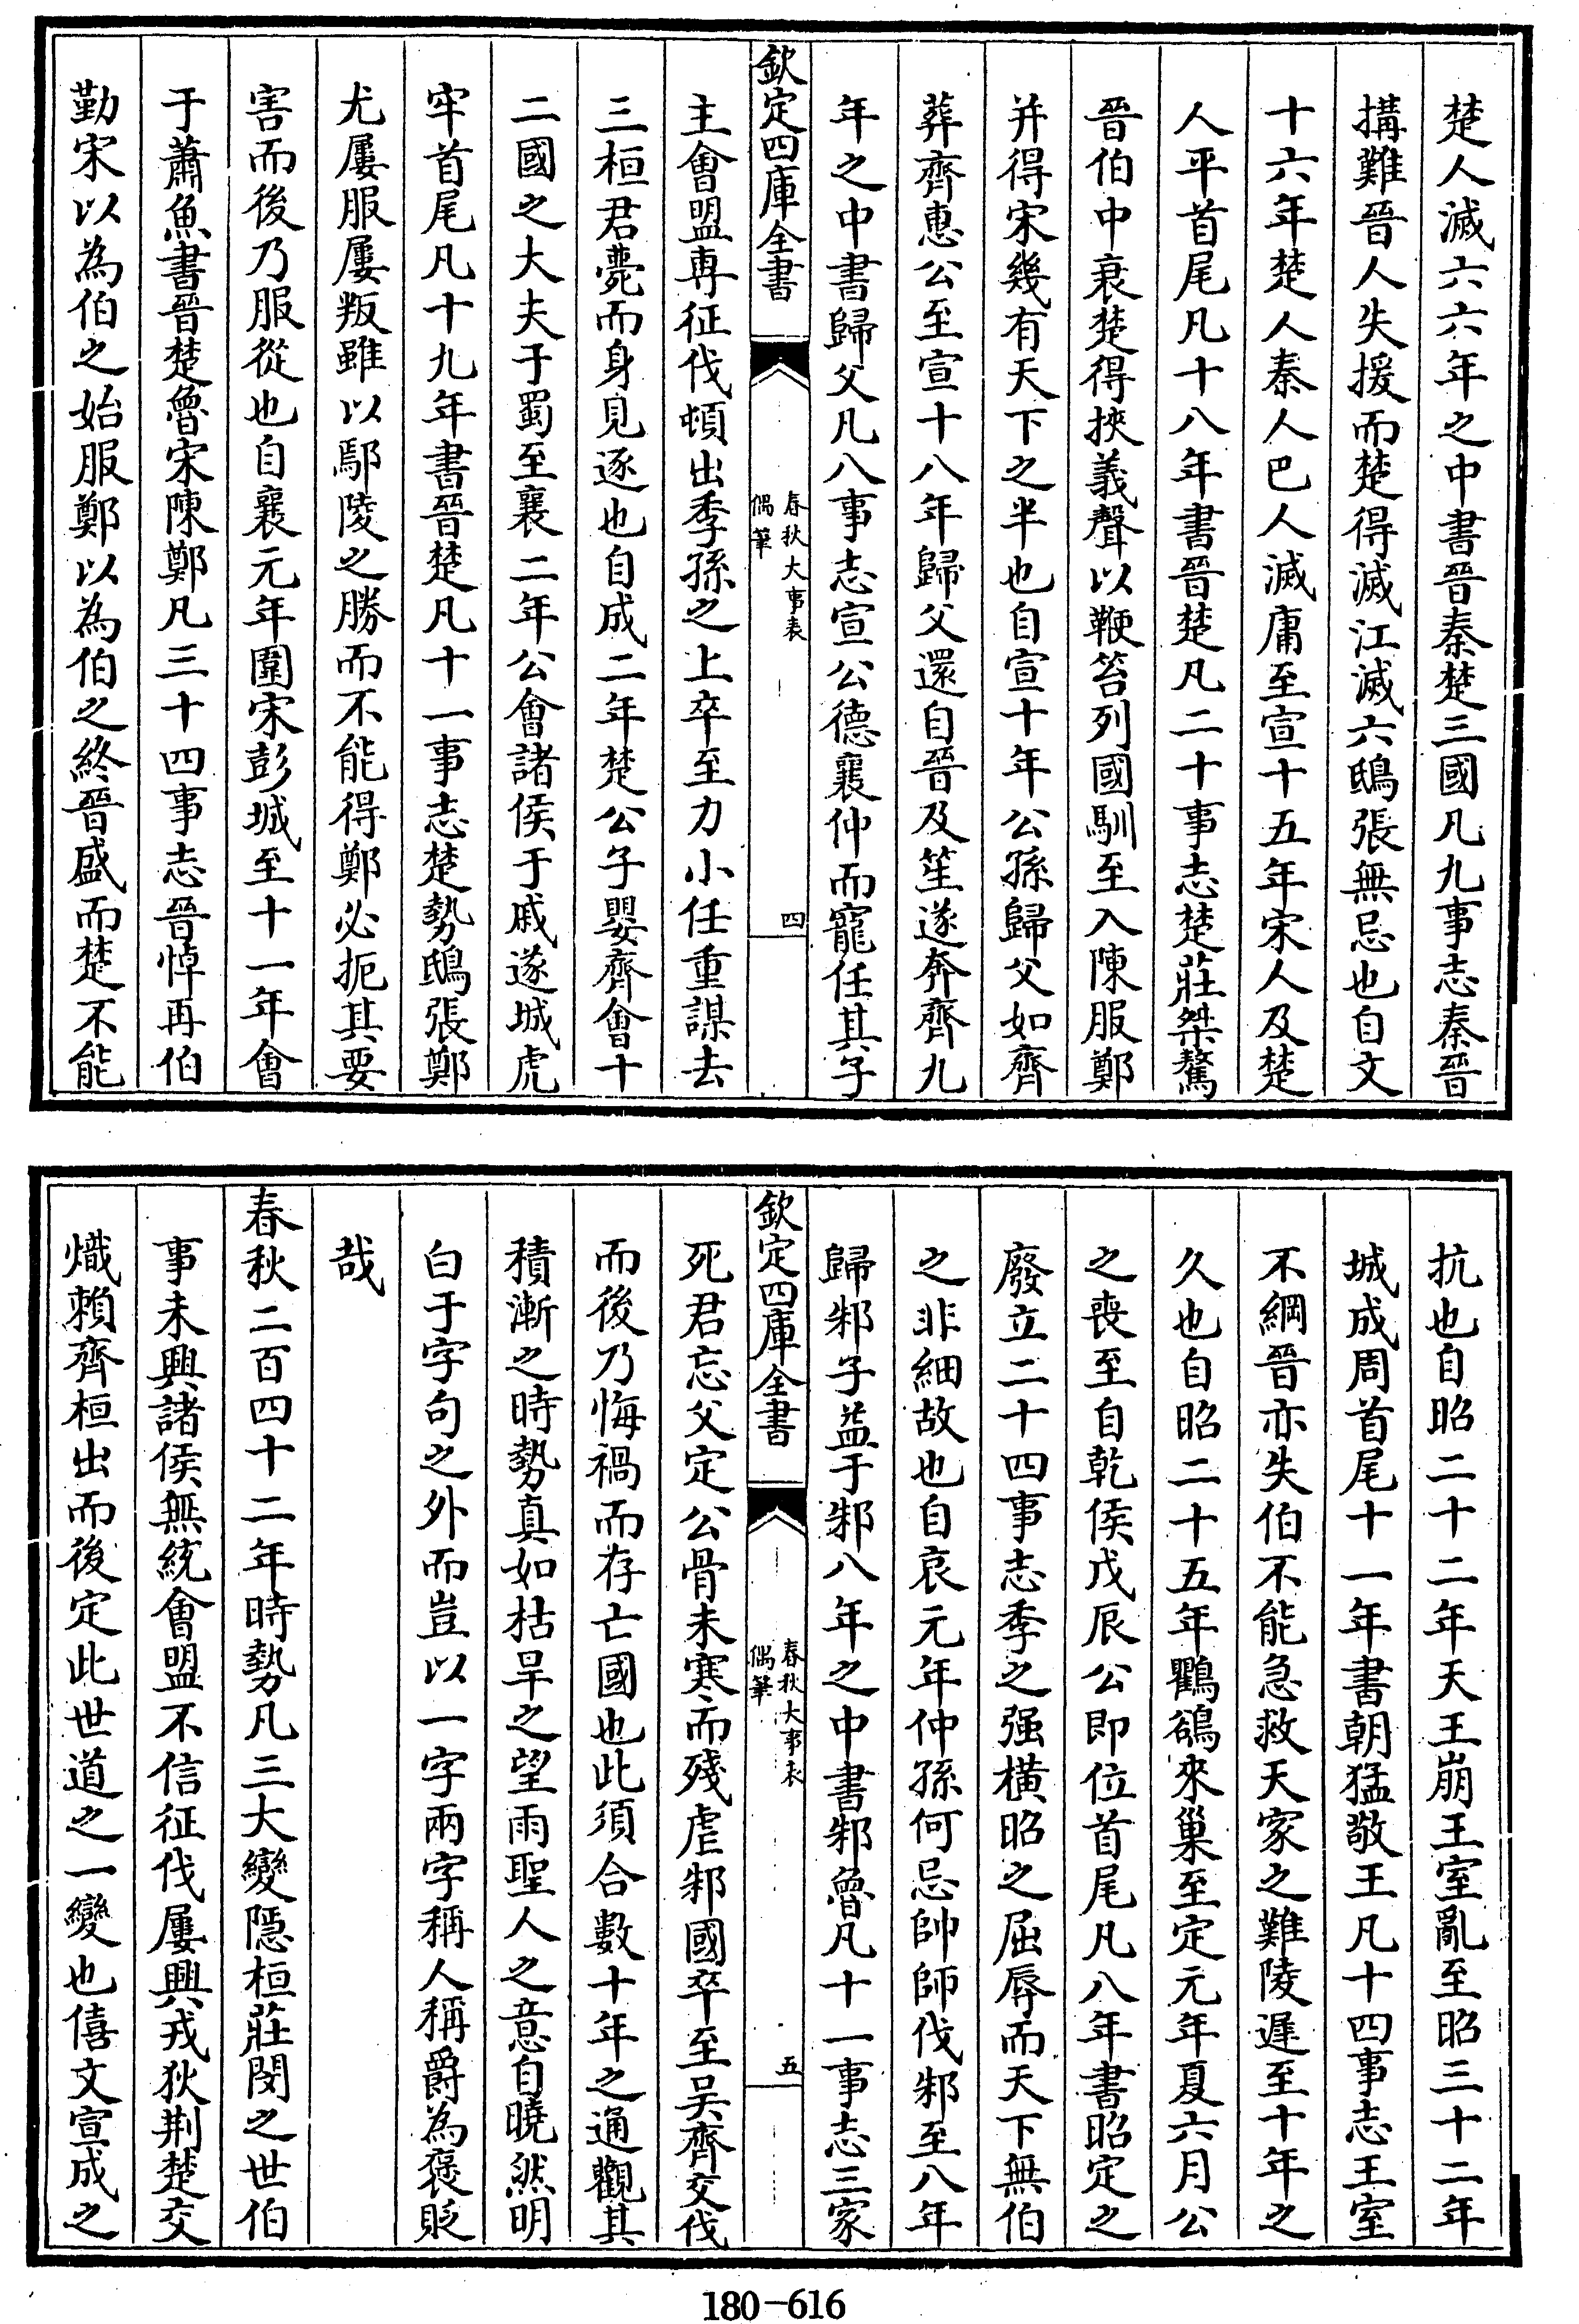 楚人滅六六年之中書晉秦楚三國凡九事志秦晉
搆難晉人失援而楚得滅江滅六鴟張無忌也自文
十六年楚人秦人巴人滅庸至宣十五年宋人及楚
人平首尾凡十八年書晉楚凡二十事志楚莊桀驁
晉伯中衰楚得挾義聲以鞭笞列國馴至入陳服鄭
并得宋幾有天下之半也自宣十年公孫歸父如齊
葬齊惠公至宣十八年歸父還自晉及笙遂奔齊九
年之中書歸父凡八事志宣公德襄仲而寵任其子
欽定四庫全書
春秋大事表
偶筆
四
主會盟專征伐頓出季孫之上卒至力小任重謀去
三桓君薨而身見逐也自成二年楚公子嬰齊會十
二國之大夫于蜀至襄二年公會諸侯于戚遂城虎
牢首尾凡十九年書晉楚凡十一事志楚勢鴟張鄭
尤屢服屢叛雖以鄢陵之勝而不能得鄭必扼其要
害而後乃服從也自襄元年圍宋彭城至十一年會
于蕭魚書晉楚魯宋陳鄭凡三十四事志晉悼再伯
勤宋以為伯之始服鄭以為伯之終晉盛而楚不能
抗也自昭二十二年天王崩王室亂至昭三十二年
城成周首尾十一年書朝猛敬王凡十四事志王室
不綱晉亦失伯不能急救天家之難陵遲至十年之
久也自昭二十五年鸜鵒來巢至定元年夏六月公
之喪至自乾侯戊辰公即位首尾凡八年書昭定之
廢立二十四事志季之强橫昭之屈辱而天下無伯
之非細故也自哀元年仲孫何忌帥師伐邾至八年
歸邾子益于邾八年之中書邾魯凡十一事志三家
欽定四庫全書
春秋大事表
偶筆
五
死君忘父定公骨未寒而殘虐邾國卒至吳齊交伐
而後乃悔禍而存亡國也此須合數十年之通觀其
積漸之時勢真如枯旱之望雨聖人之意自曉然明
白于字句之外而豈以一字兩字稱人稱爵為褒貶
哉
春秋二百四十二年時勢凡三大變隱桓莊閔之世伯
事未興諸侯無統會盟不信征伐屢興戎狄荆楚交
熾賴齊桓出而後定此世道之一變也僖文宣成之
180-616